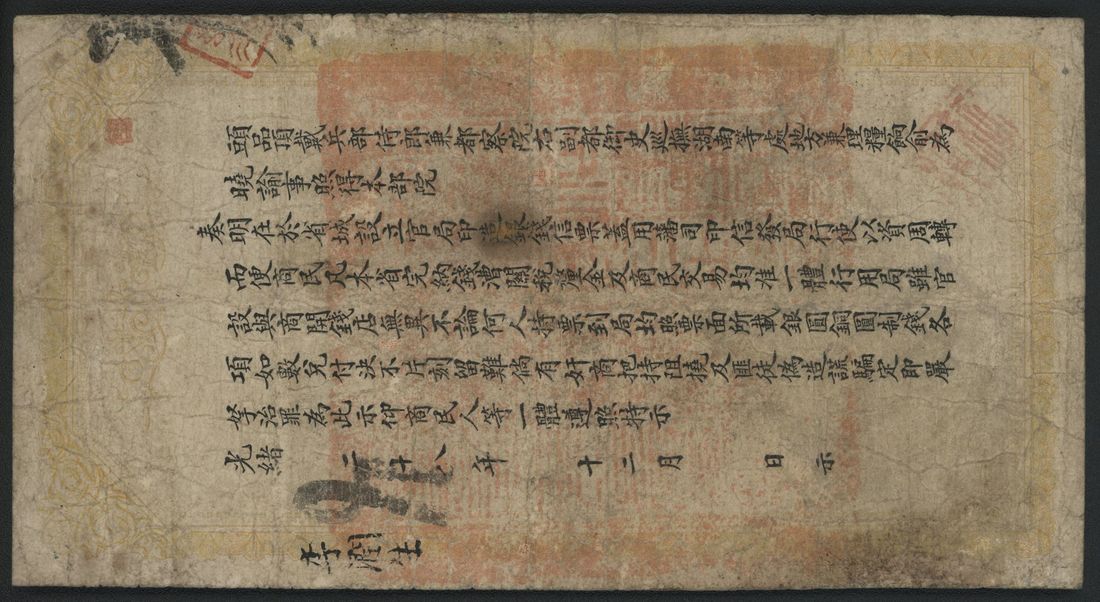 頭品頂戴兵部侍郎兼都察院右副都御史巡撫湖南等處地方兼理糧餉俞為
曉諭事照得本部院
奏明在於省城設立官局印造銀錢信票蓋用藩司印信發局行使以資周轉
而便商民凡本省完納錢漕關稅厘金及商民交易均准一體行用局雖官
設與商開錢店無異不論何人持票到局均照票面所載銀圓銅圓制錢各
項如數兌付決不片刻留難倘有奸商把持阻撓及匪徒偽造謊騙定即嚴
拏治罪為此示仰商民人等一體遵照特示
光緒二十八年十二月 日示
李潤生